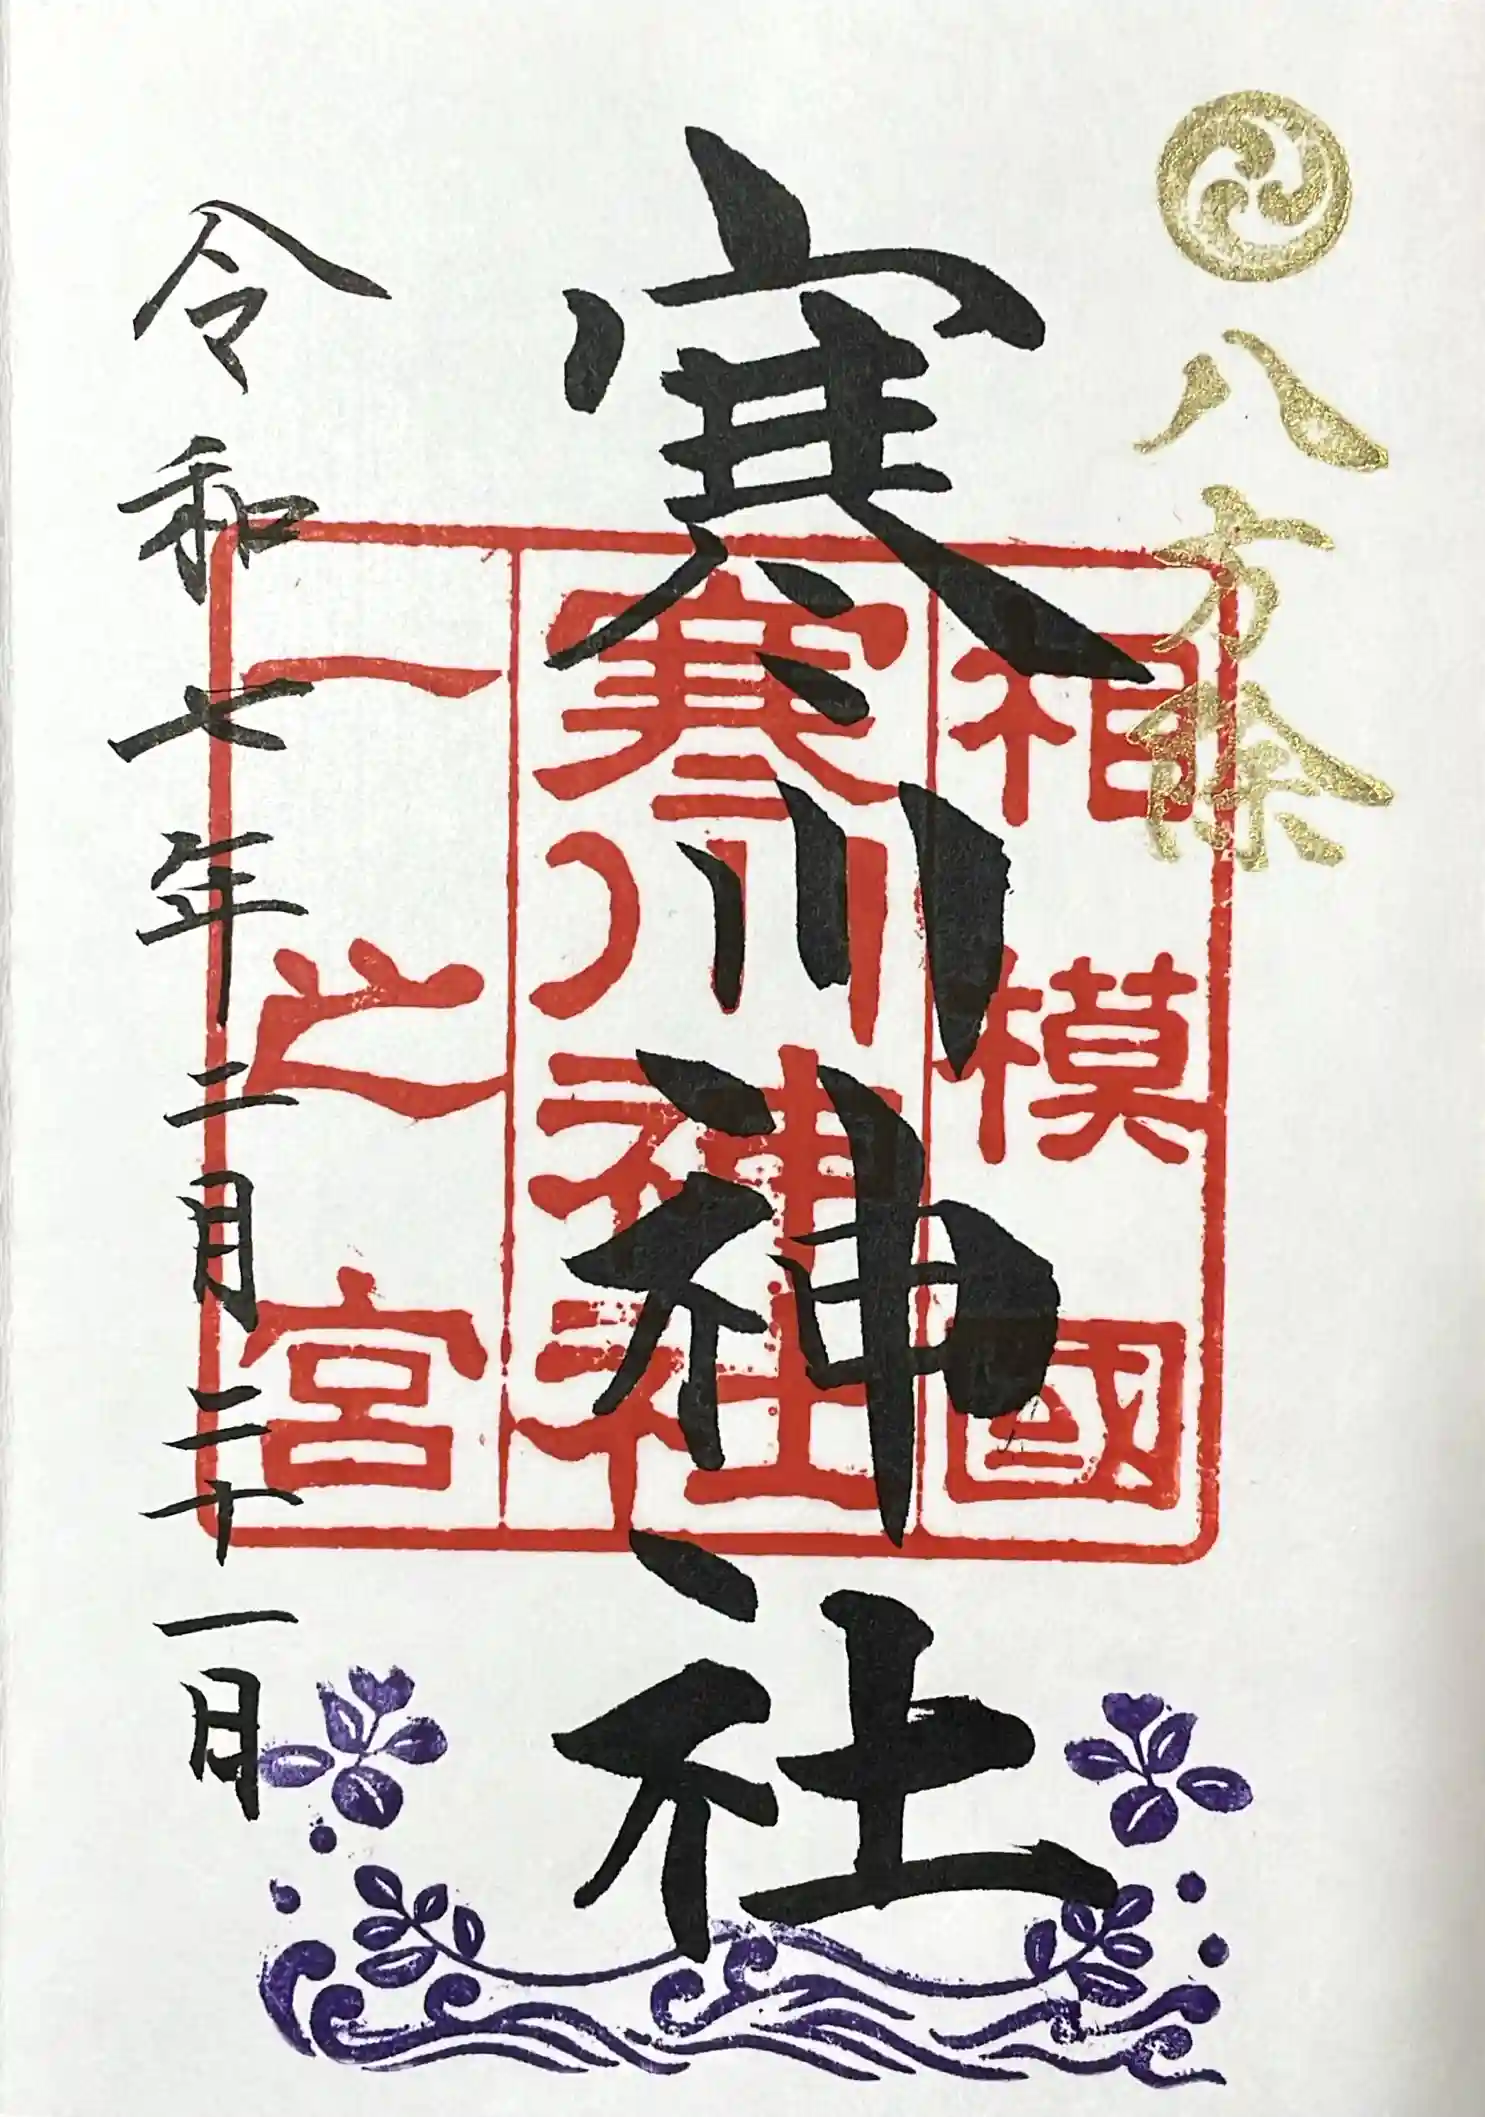 八方除
寒川神社
相模國
寒川神社
一之宮
令和七年二月二十一日